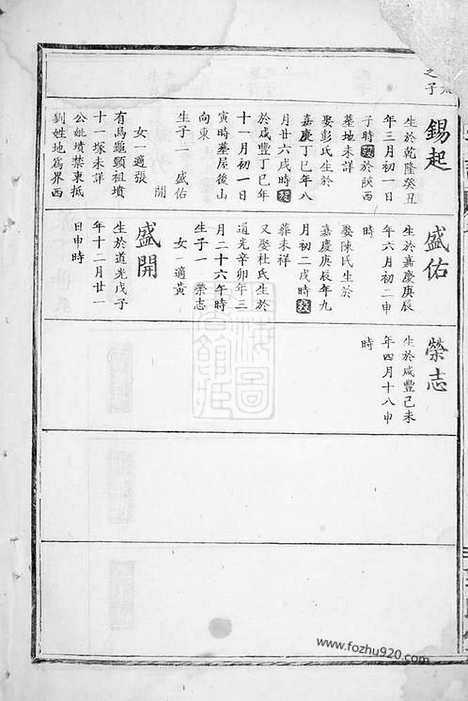 之子
錫起
生於乾隆癸丑
年三月初一日
子時歿於陝西
墓地未詳
娶彭氏生於
嘉慶丁巳年八
月廿六戌時歿
於咸豐丁巳年
十一月初一日
寅時塟屋後山
向東
生子一 盛佑
開
女一適張
有馬龜頸祖墳
十一塚未詳
公妣墳禁東抵
劉姓地為界西
盛佑
生於嘉慶庚辰
年六月初二申
時
娶陳氏生於
嘉慶庚辰年九
月初二戌時歿
葬未祥
又娶杜氏生於
道光辛卯年三
月二十六午時
生子一 榮志
女一適黃
盛開
生於道光戊子
年十二月廿一
日申時
榮志
生於咸豐己未
年四月十八申
時
www.fozhu920.com